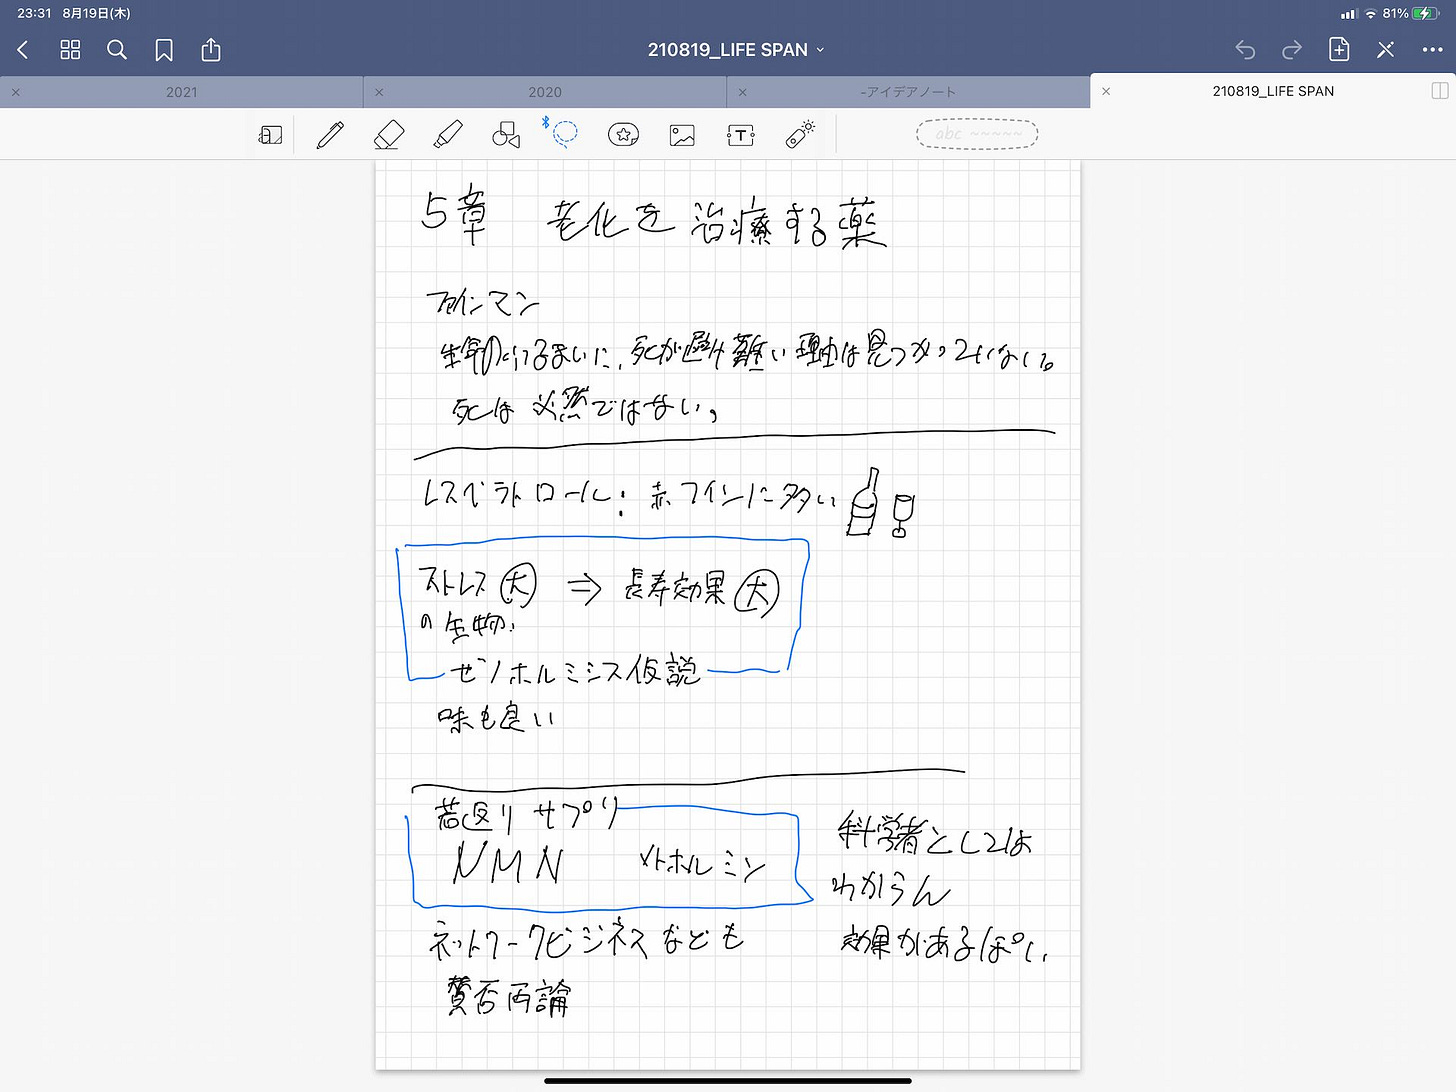 23:31 8月19日(木)
81%
210819_LIFE SPAN
2021
2020
-アイデアノート
210819_LIFE SPAN
abc
5章 老化を治療する薬
ファインマン
生物のふるまいに、死が避け難い理由は見つかっていない。
死は必然ではない。
レスベラトロール: 赤ワインに多い
ストレス 大 ⇒ 長寿効果 大
の生物.
ゼノホルミシス仮説
味も良い
若返りサプリ
NMN メトホルミン
ネットワークビジネスなども
賛否両論
科学者としては
わからん
効果があるぽい.